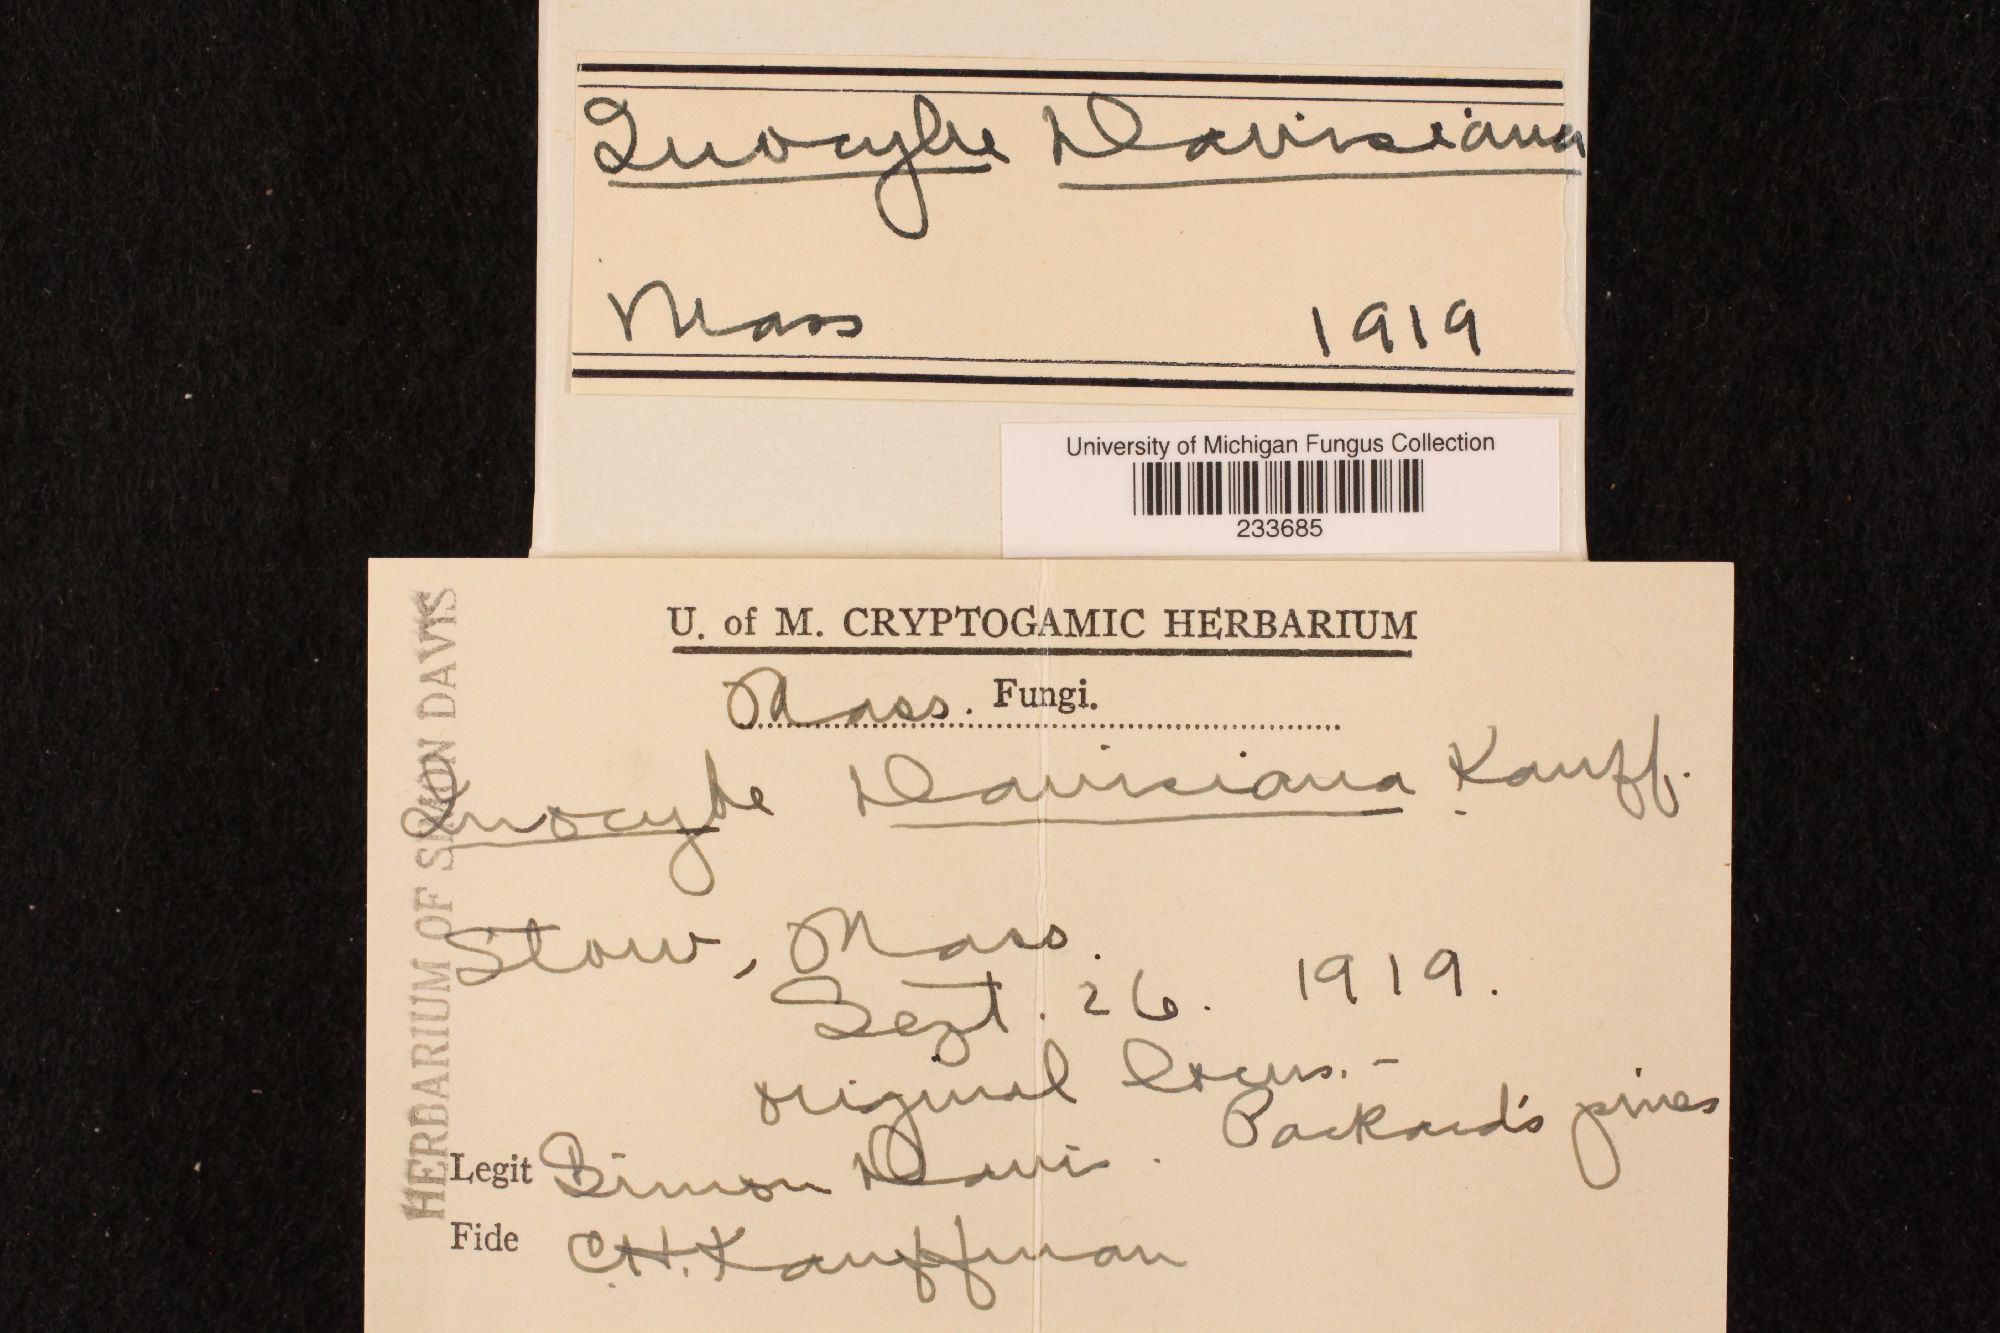 Inocybe Davisiana
Mass 1919
University of Michigan Fungus Collection
233685
U. of M. CRYPTOGAMIC HERBARIUM
Mass. Fungi.
Inocybe Davisiana Kauff.
Stow, Mass.
Sept. 26. 1919.
original locus. -
Packard's pines
Legit Simon Davis.
Fide C.H. Kauffman
HERBARIUM OF SIMON DAVIS